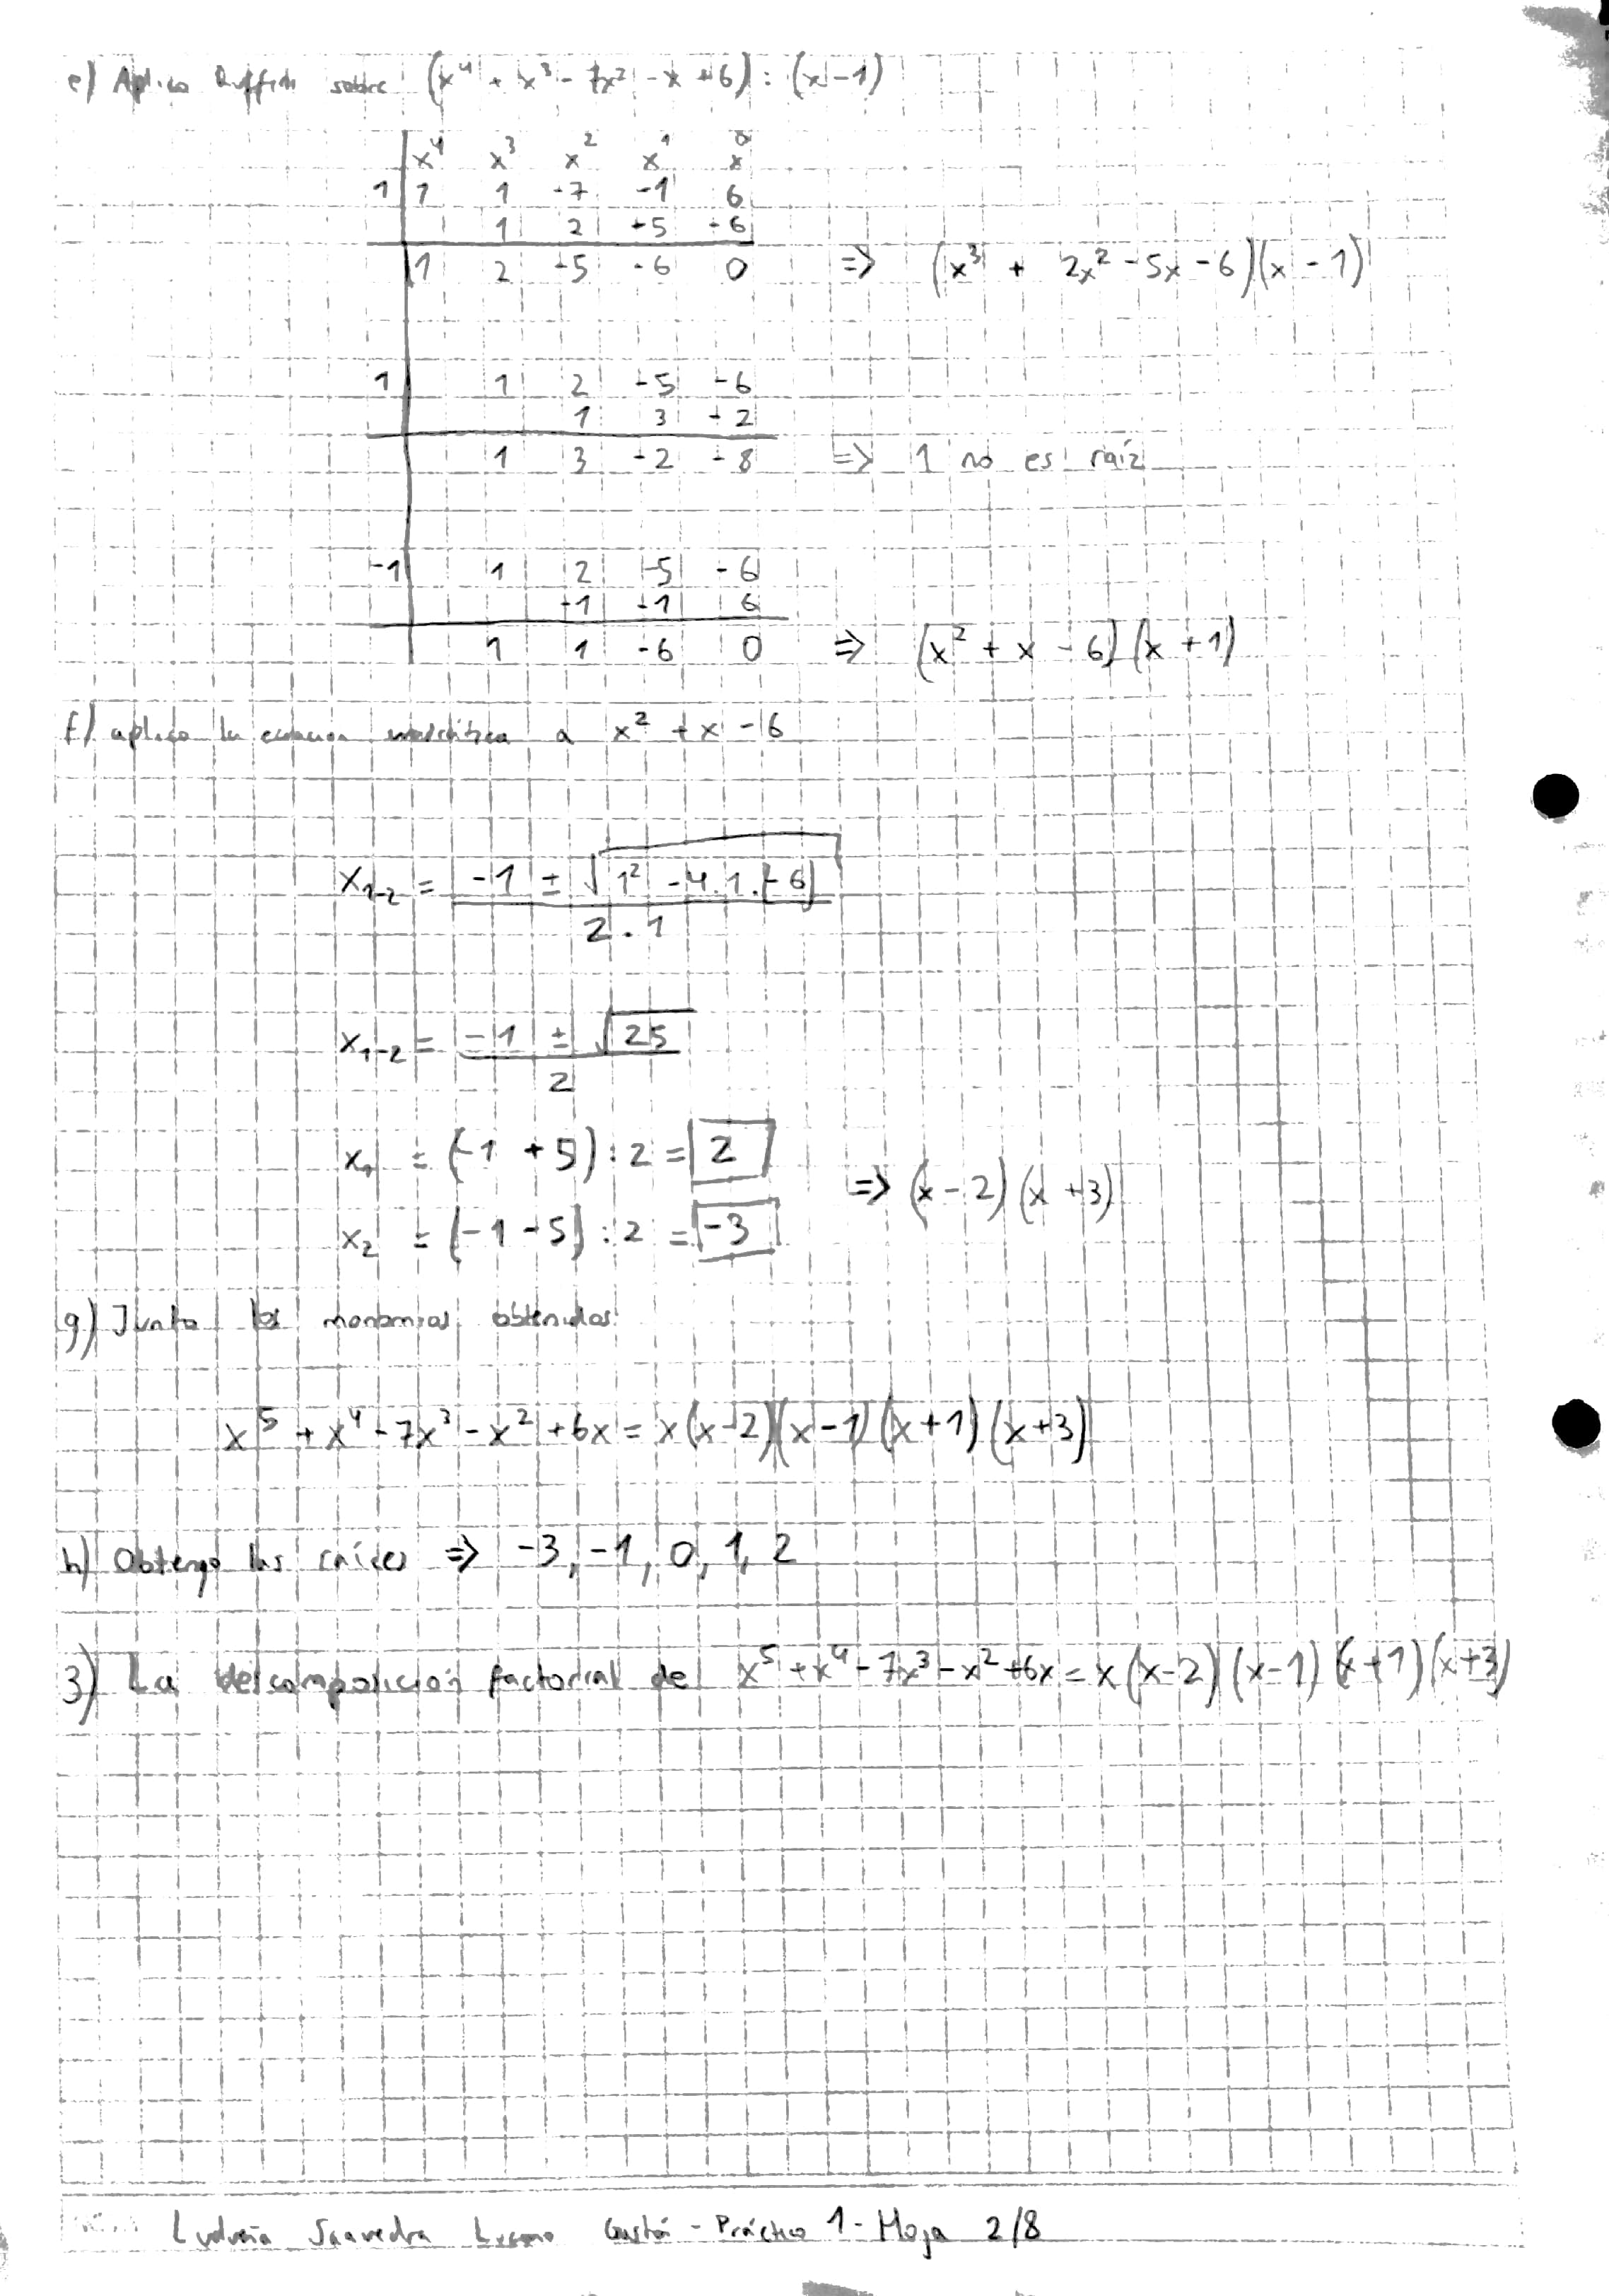 e) Aplico Ruffini sobre (x⁴ + x³ - 7x² - x + 6) : (x - 1)
x⁴ x³ x² x¹ x⁰
1 | 1 1 -7 -1 6
1 2 -5 -6
1 2 -5 -6 0 => (x³ + 2x² - 5x - 6)(x - 1)
1 | 1 2 -5 -6
1 3 -2
1 3 -2 -8 => 1 no es raíz
-1 | 1 2 -5 -6
-1 -1 6
1 1 -6 0 => (x² + x - 6)(x + 1)
f) aplico la ecuacion cuadrática a x² + x - 6
x₁₋₂ = -1 ± √1² - 4.1.(-6)
2.1
x₁₋₂ = -1 ± √25
2
x₁ = (-1 + 5) : 2 = 2
=> (x - 2)(x + 3)
x₂ = (-1 - 5) : 2 = -3
g) Junto los monomios obtenidos
x⁵ + x⁴ - 7x³ - x² + 6x = x(x-2)(x-1)(x+1)(x+3)
h) Obtengo las raíces => -3, -1, 0, 1, 2
3) La descomposición factorial de x⁵ + x⁴ - 7x³ - x² + 6x = x(x-2)(x-1)(x+1)(x+3)
Saavedra Gastón - Práctico 1 - Hoja 2/8